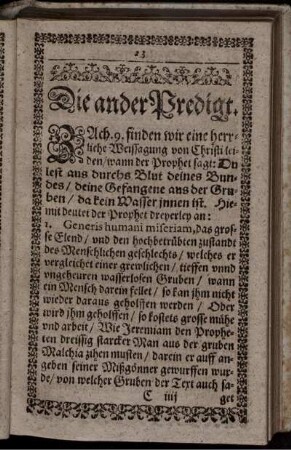 23
Die ander Predigt.
ZAch. 9. finden wir eine herr-
liche Weissagung von Christi lei-
den / wann der Prophet sagt: Du
lest aus durchs Blut deines Bun-
des / deine Gefangene aus der Gru-
ben / da kein Wasser jnnen ist. Hie-
mit deutet der Prophet dreyerley an:
1. Generis humani miseriam, das gros-
se Elend / vnd den hochbetrübten zustandt
des Menschlichen geschlechts / welches er
vergleichet einer grewlichen / tieffen vnnd
vngeheuren wasserlosen Gruben / wann
ein Mensch darein fellet / so kan jhm nicht
wieder daraus geholffen werden / Oder
wird jhm geholffen / so kostets grosse mühe
vnd arbeit / Wie Jeremiam den Prophe-
ten dreissig starcker Man aus der gruben
Malchia zihen musten / darein er auff an-
geben seiner Mißgönner gewurffen wur-
de / von welcher Gruben der Text auch sa-
C iiij get